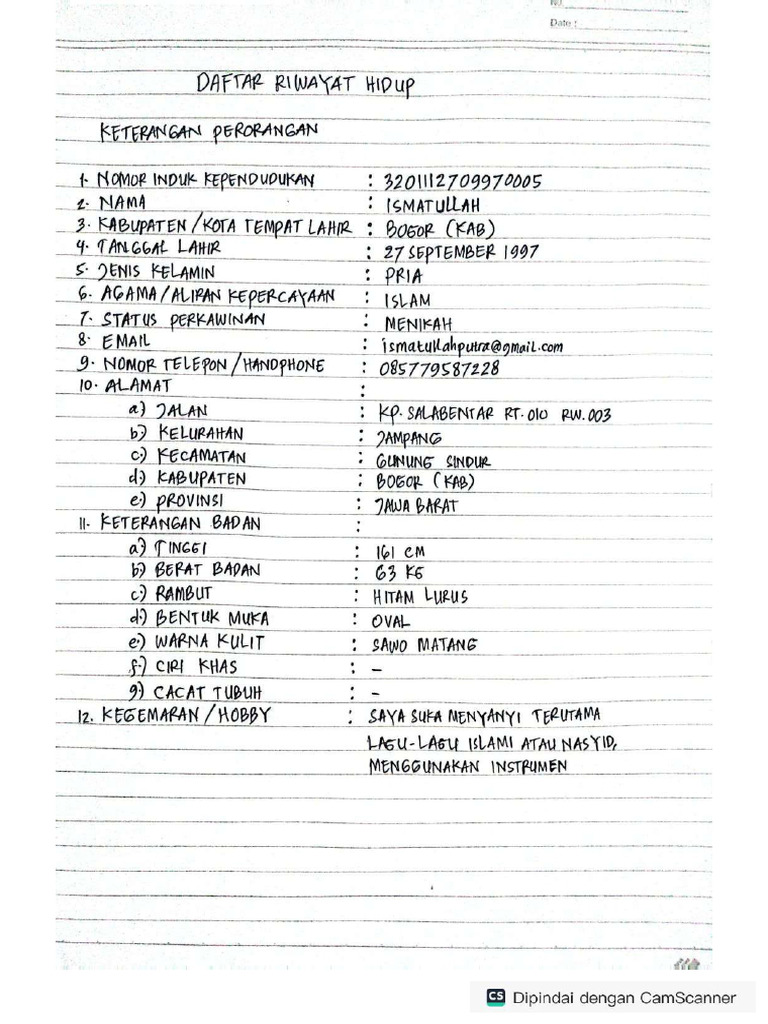 No
Date :
DAFTAR RIWAYAT HIDUP
KETERANGAN PERORANGAN
1. NOMOR INDUK KEPENDUDUKAN : 3201112709970005
2. NAMA : ISMATULLAH
3. KABUPATEN / KOTA TEMPAT LAHIR : BOGOR (KAB)
4. TANGGAL LAHIR : 27 SEPTEMBER 1997
5. JENIS KELAMIN : PRIA
6. AGAMA / ALIRAN KEPERCAYAAN : ISLAM
7. STATUS PERKAWINAN : MENIKAH
8. EMAIL : ismatullahputra@gmail.com
9. NOMOR TELEPON / HANDPHONE : 085779587228
10. ALAMAT :
a) JALAN : KP. SALABENTAR RT. 010 RW. 003
b) KELURAHAN : JAMPANG
c) KECAMATAN : GUNUNG SINDUR
d) KABUPATEN : BOGOR (KAB)
e) PROVINSI : JAWA BARAT
11. KETERANGAN BADAN :
a) TINGGI : 161 CM
b) BERAT BADAN : 63 KG
c) RAMBUT : HITAM LURUS
d) BENTUK MUKA : OVAL
e) WARNA KULIT : SAWO MATANG
f) CIRI KHAS : -
g) CACAT TUBUH : -
12. KEGEMARAN / HOBBY : SAYA SUKA MENYANYI TERUTAMA
LAGU-LAGU ISLAMI ATAU NASYID,
MENGGUNAKAN INSTRUMEN
CS Dipindai dengan CamScanner